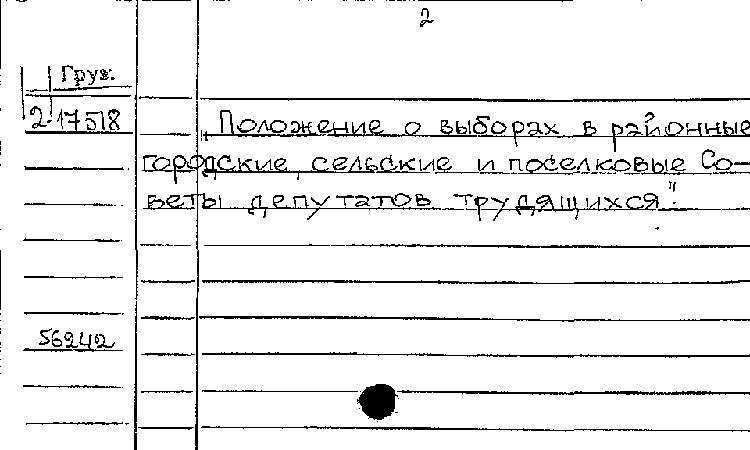 2
Груз.
2-17518
„Положение о выборах в районные
городские, сельские и поселковые Со-
веты депутатов трудящихся."
56242